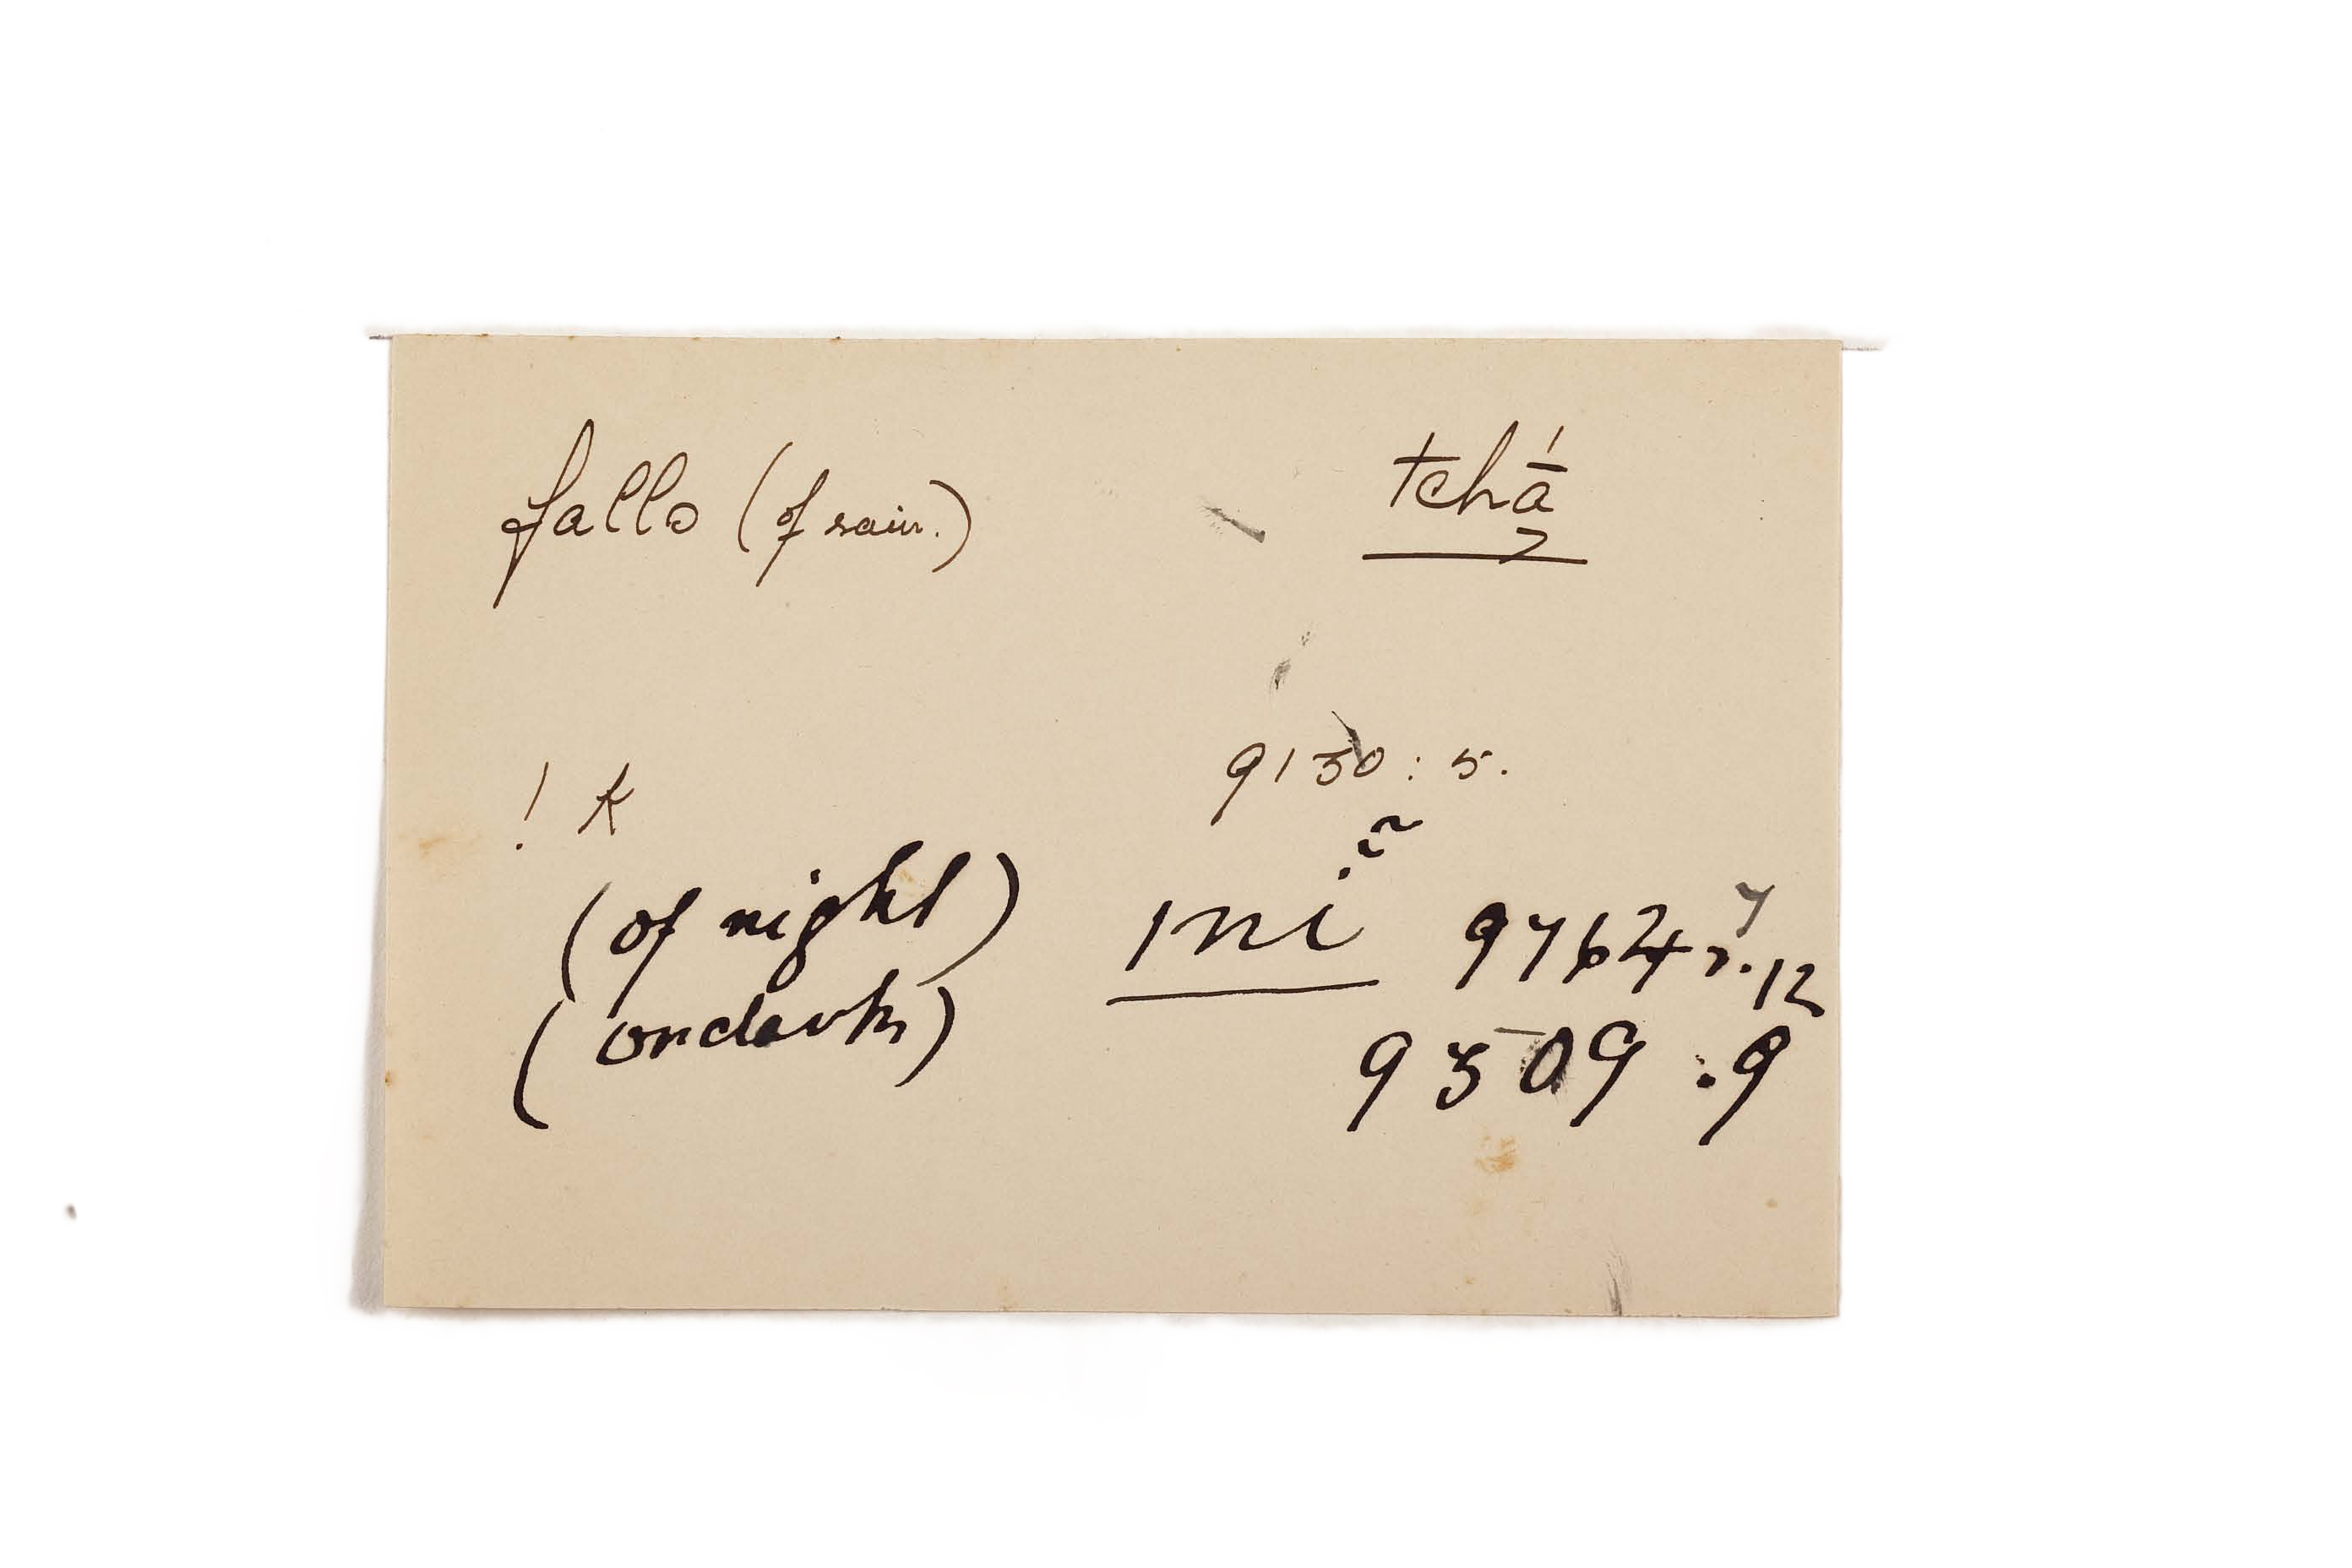 falls (of rain.) tchá̄
9150 : 5.
! k
(of night) ını̃ 9764 r. 12
(or dark) 9509 . 9